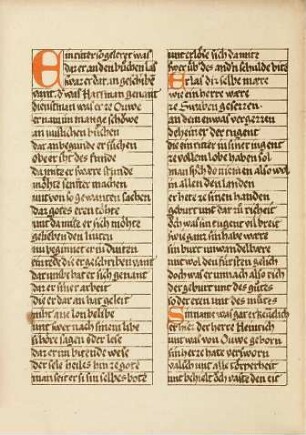 Ein ritter so geleret was
daz er an den buchen las
swaz er dar an geschriben
vant. d' was Hartman genant
dienstman was er ze Ouwe
er nam im mange schowe
an mislichen buchen
dar an begunde er suchen
ob er iht des funde
da mite er swære stunde
mohte senfter machen
und von so gewanten sachen
daz gotes eren tohte
und da mite er sich mohte
gelieben den luten
nu beginnet er iu duten
ein rede die er geschriben vant
dar umbe hat er sich genant
daz er siner arbeit
die er dar an hat geleit
iht ane lon belibe
und swer nach sinem libe
si hore sagen oder lese
daz er im bitende wese
der sele heiles hin ze gote
man seit er si sin selbes bote
unt erlose sich da mite
swer ub' des and'n schulde bite
Er las diz selbe mære
wie ein herre wære
ze Swaben gesezzen
an dem enwas vergezzen
deheiner der tugent
die ein ritter in siner jugent
ze vollem lobe haben sol
man sach do niemen also wol
in allen den landen
er hete ze sinen handen
geburt und dar zu richeit
ouch was sin tugent vil breit
swie ganz sin habe wære
sin burt unwandelbære
und wol den fursten gelich
doch was er unnach also rich
der geburt und des gutes
so der eren und des mutes
Sin name was gar erkenlich
er hiez der herre Heinrich
und was von Ouwe geborn
sin herze hate versworn
valsch und alle torperheit
und behielt ouch vaste den eit